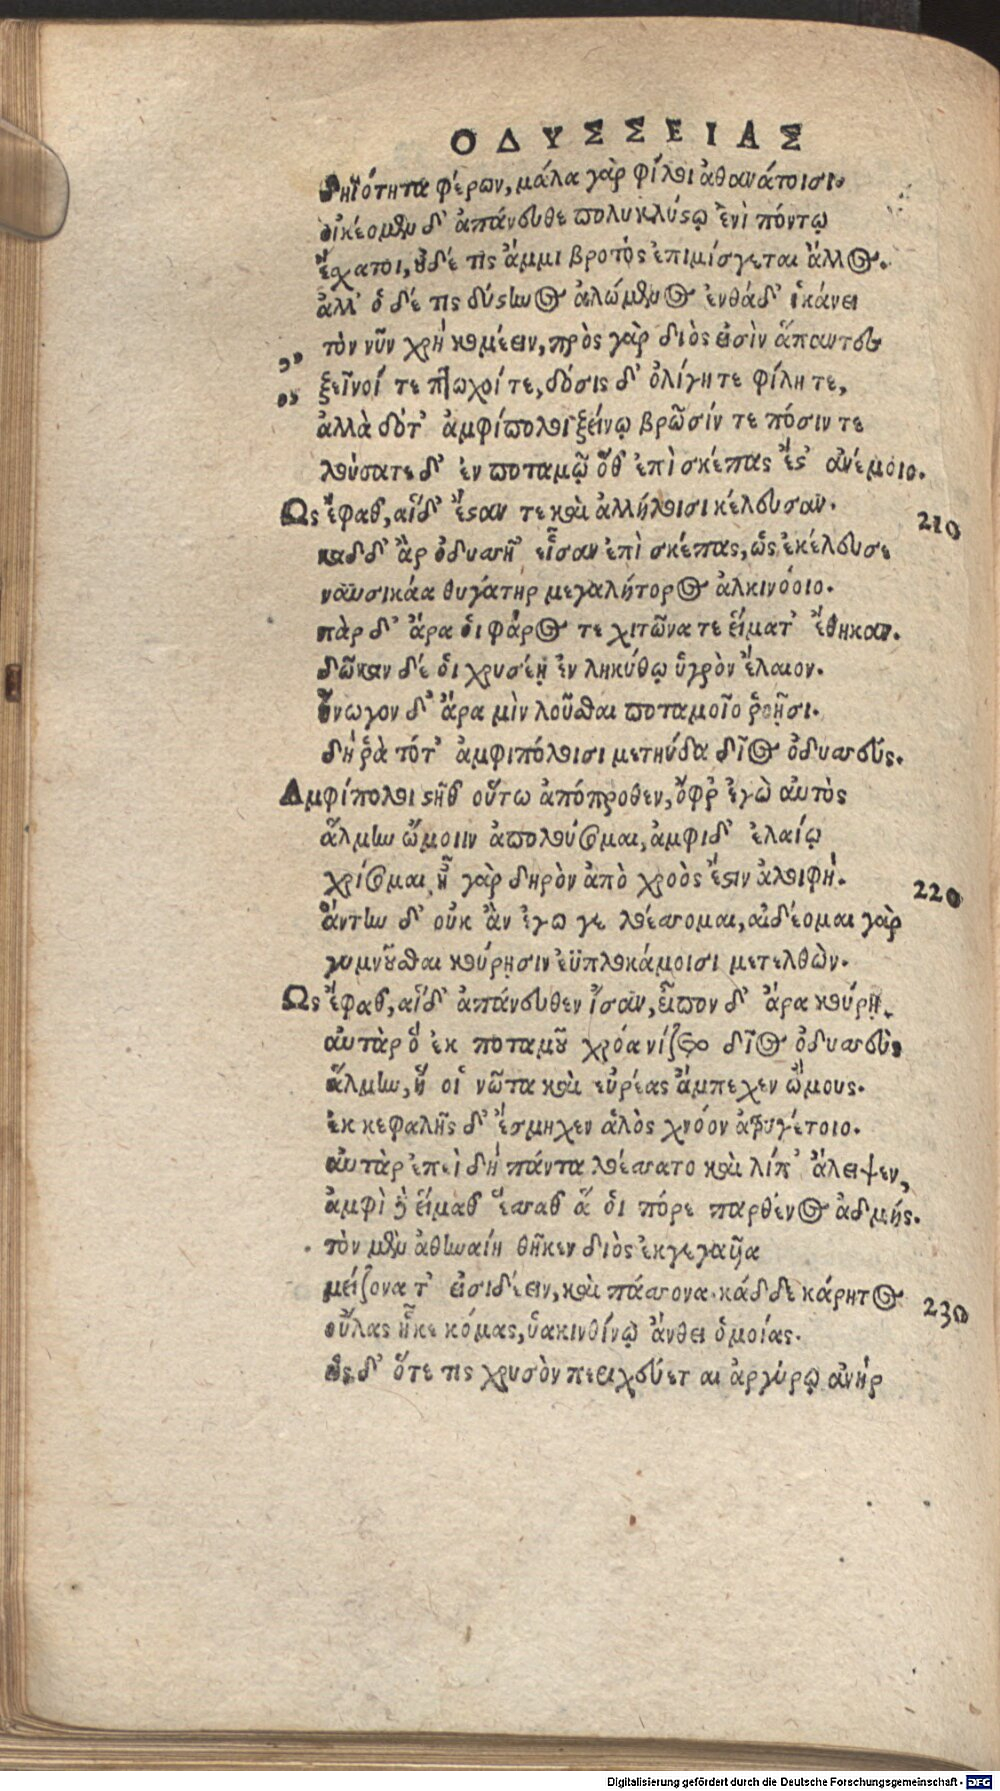 ΟΔΥΣΣΕΙΑΣ
δηϊότητα φέρων, μάλα γὰρ φίλοι ἀθανάτοισι.
οἰκέομεν δ' ἀπάνευθε πολυκλύστῳ ἐνὶ πόντῳ
ἔσχατοι, οὐδέ τις ἄμμι βροτὸς ἐπιμίσγεται ἄλλος.
ἀλλ' ὅδέ τις δύστηνος ἀλώμενος ἐνθάδ' ἱκάνει
τὸν νῦν χρὴ κομέειν, πρὸς γὰρ διὸς εἰσὶν ἅπαντες
,, ξεῖνοί τε πτωχοί τε, δόσις δ' ὀλίγη τε φίλη τε,
ἀλλὰ δότ' ἀμφίπολοι ξείνῳ βρῶσίν τε πόσιν τε
λούσατε δ' ἐν ποταμῷ ὅθ' ἐπὶ σκέπας ἔστ' ἀνέμοιο.
Ως ἔφαθ', αἱ δ' ἔσταν τε καὶ ἀλλήλοισι κέλευσαν. 210
καδδ' ἂρ ὀδυσσῆ' εἷσαν ἐπὶ σκέπας, ὡς ἐκέλευσε
ναυσικάα θυγάτηρ μεγαλήτορος ἀλκινόοιο.
πὰρ δ' ἄρα οἱ φᾶρος τε χιτῶνα τε εἵματ' ἔθηκαν.
δῶκαν δέ οἱ χρυσέῃ ἐν ληκύθῳ ὑγρὸν ἔλαιον.
ἤνωγον δ' ἄρα μὶν λοῦσθαι ποταμοῖο ῥοῇσι.
δή ῥὰ τότ' ἀμφιπόλοισι μετηύδα δῖος ὀδυσσεύς.
Αμφίπολοι στῆθ' οὕτω ἀπόπροθεν, ὄφρ' ἐγὼ αὐτὸς
ἅλμην ὤμοιιν ἀπολούσομαι, ἀμφὶ δ' ἐλαίῳ
χρίσομαι, ἦ γὰρ δηρὸν ἀπὸ χροὸς ἔστιν ἀλοιφή. 220
ἄντην δ' οὐκ ἂν ἐγώ γε λοέσσομαι, αἰδέομαι γὰρ
γυμνοῦσθαι κούρῃσιν ἐϋπλοκάμοισι μετελθών.
Ως ἔφαθ', αἱ δ' ἀπάνευθεν ἴσαν, εἶπον δ' ἄρα κούρῃ.
αὐτὰρ ὅ ἐκ ποταμοῦ χρόα νίζετο δῖος ὀδυσσεὺς
ἅλμην, ἥ οἱ νῶτα καὶ εὐρέας ἄμπεχεν ὤμους.
ἐκ κεφαλῆς δ' ἔσμηχεν ἁλὸς χνόον ἀτρυγέτοιο.
αὐτὰρ ἐπεὶ δὴ πάντα λοέσσατο καὶ λίπ' ἄλειψεν,
ἀμφὶ δὲ εἵμαθ' ἕσσαθ' ἅ οἱ πόρε παρθένος ἀδμής.
τὸν μὲν ἀθηναίη θῆκεν διὸς ἐκγεγαυῖα
μείζονα τ' εἰσιδέειν, καὶ πάσσονα. κάδδε κάρητος 230
οὔλας ἧκε κόμας, ὑακινθίνῳ ἄνθει ὁμοίας.
ὡς δ' ὅτε τις χρυσὸν περιχεύεται ἀργύρῳ ἀνὴρ
Digitalisierung gefördert durch die Deutsche Forschungsgemeinschaft - DFG